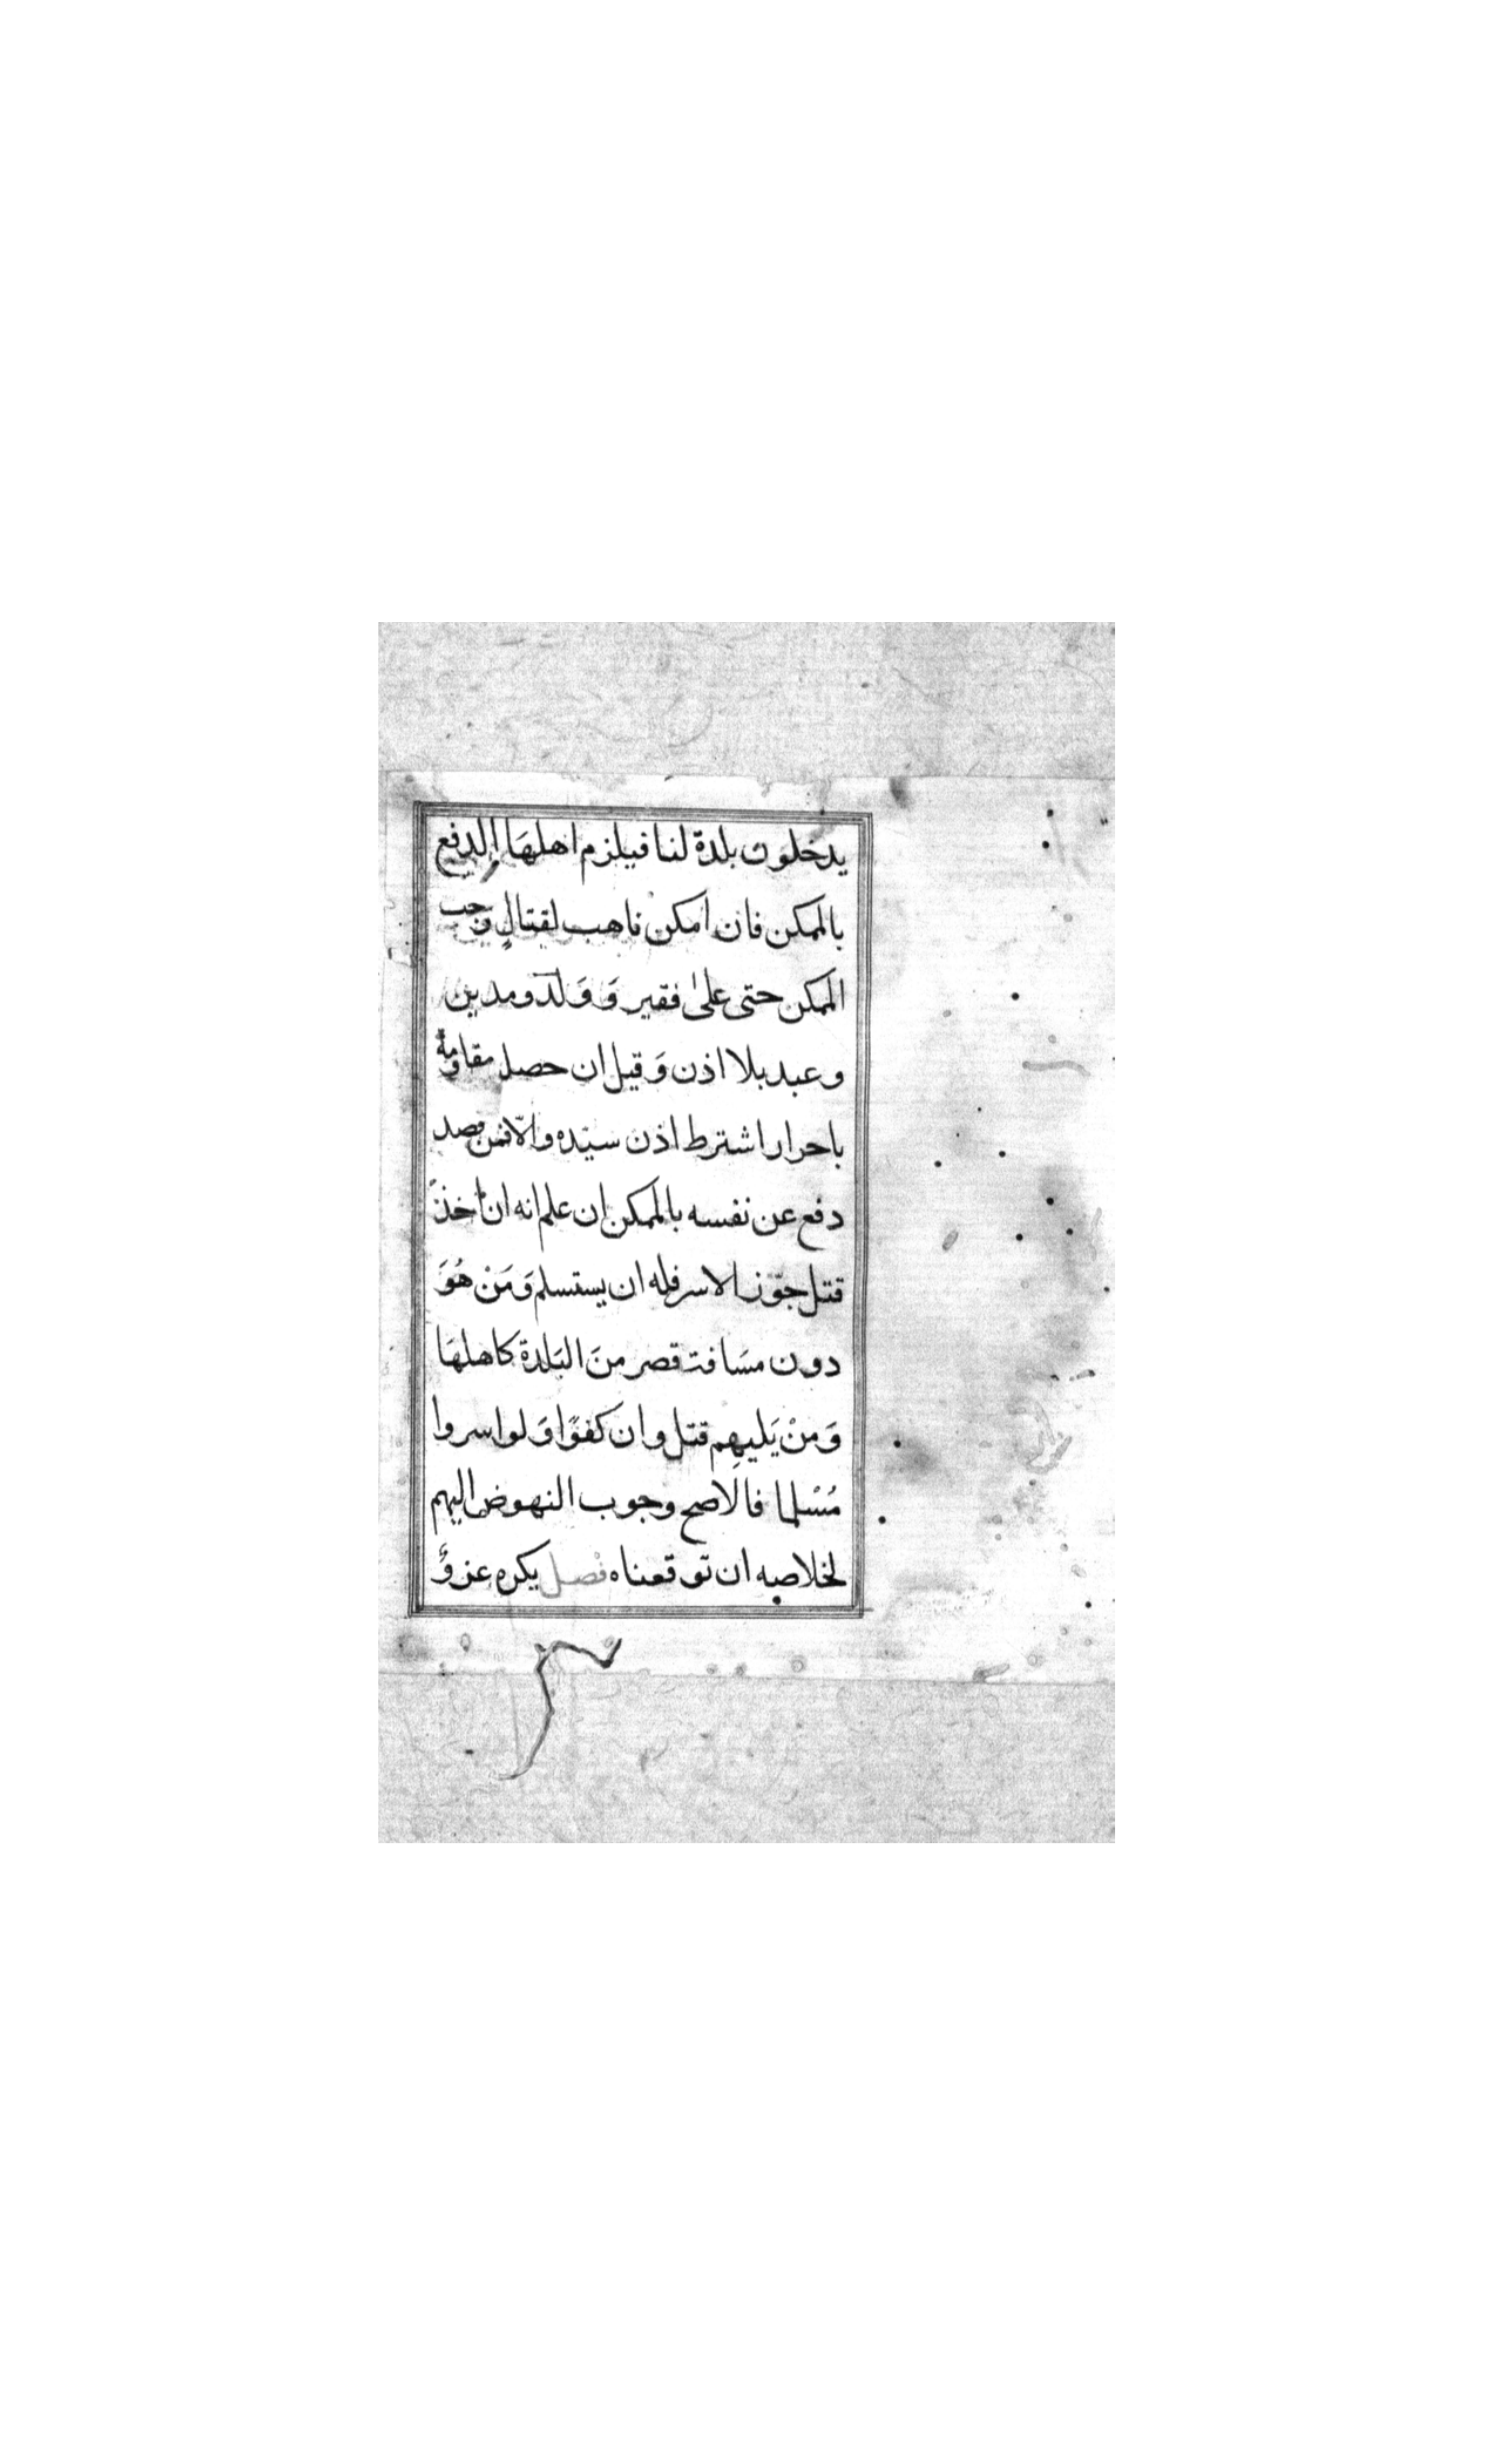 يدخلون بلدة لنا فيلزم اهلهَا الدفع
بالممكن فان امكن فاهب لقتالٍ وجب
الممكن حتى على فقير وَ وَلد ومدين
وعبد بلا اذن وَقيل ان حصل مقاومة
باحرار اشترط اذن سيّده والّا فمن قصد
دفع عن نفسه بالممكن ان علم انه ان أخذ
قتل جوّز الاسر فله ان يستسلم وَمَنْ هُوَ
دون مسَافة قصر منَ البَلدة كاهلهَا
وَمنْ يَليهِم قتل وان كفوًا وَلو اسروا
مُسْلما فالاصح وجوب النهوض اليهم
لخلاصه ان توقعناه فصل يكره غزوٌ